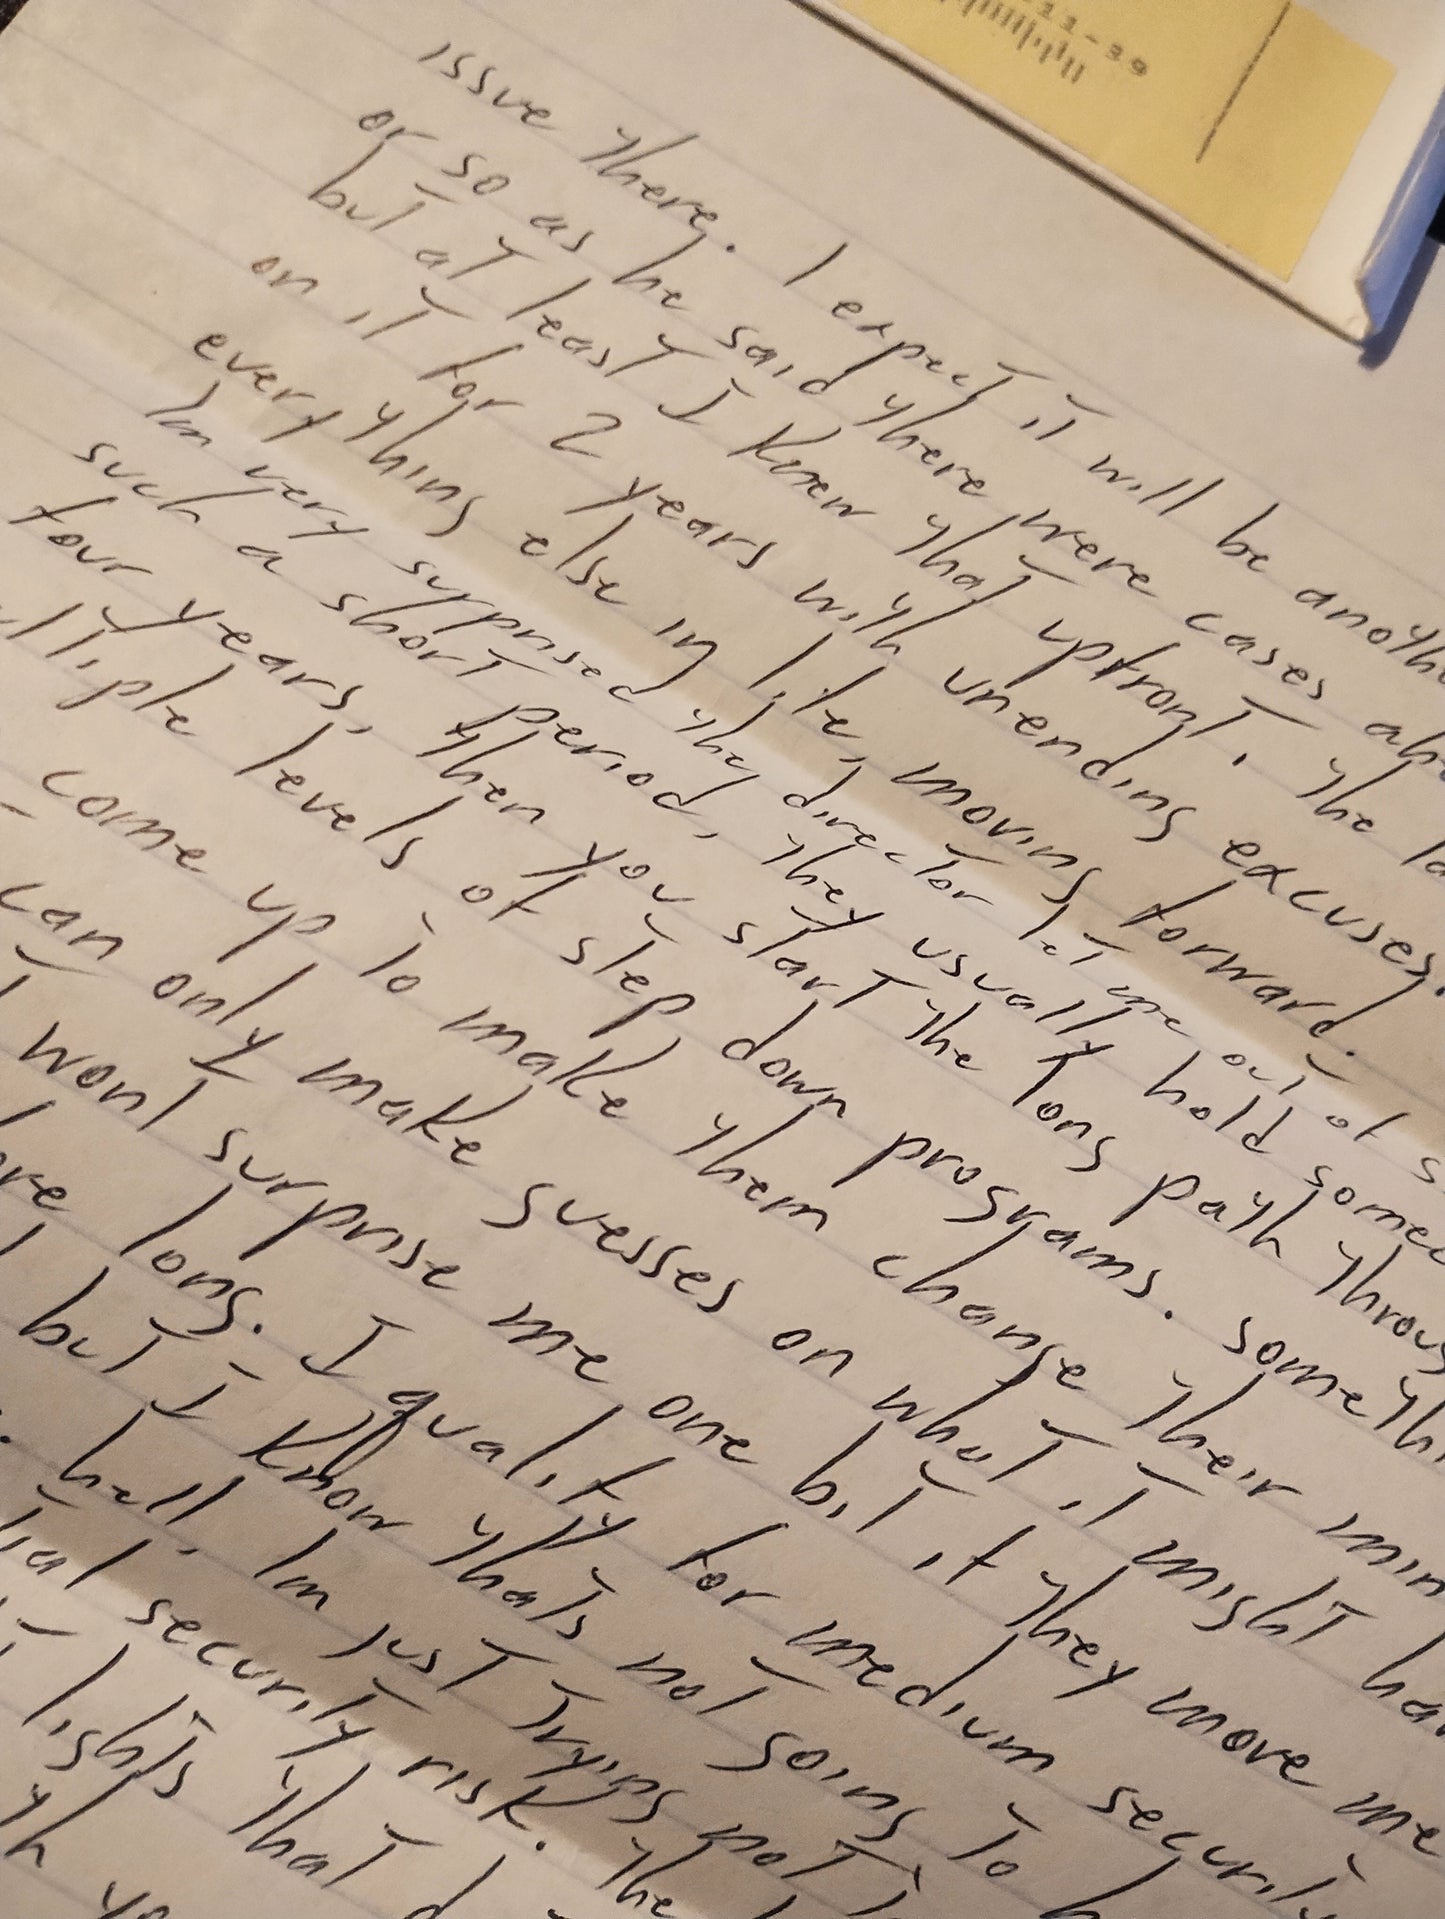 22-39
issue there. I expect it will be anothe
or so as he said there were cases ahe
but at least I knew that upfront. the la
on it for 2 years with unending excuses.
everything else in life, moving forward.
Im very surprised they director let me out of s
such a short period, they usually hold somec
four years, then you start the long path throug
ltiple levels of step down programs. someth
come up to make them change their min
can only make guesses on what it might ha
wont surprise me one bit if they move me
ore long. I qualify for medium security
but I know thats not going to h
hell. Im just trying not t
tial security risk. the
lights that d
th yo